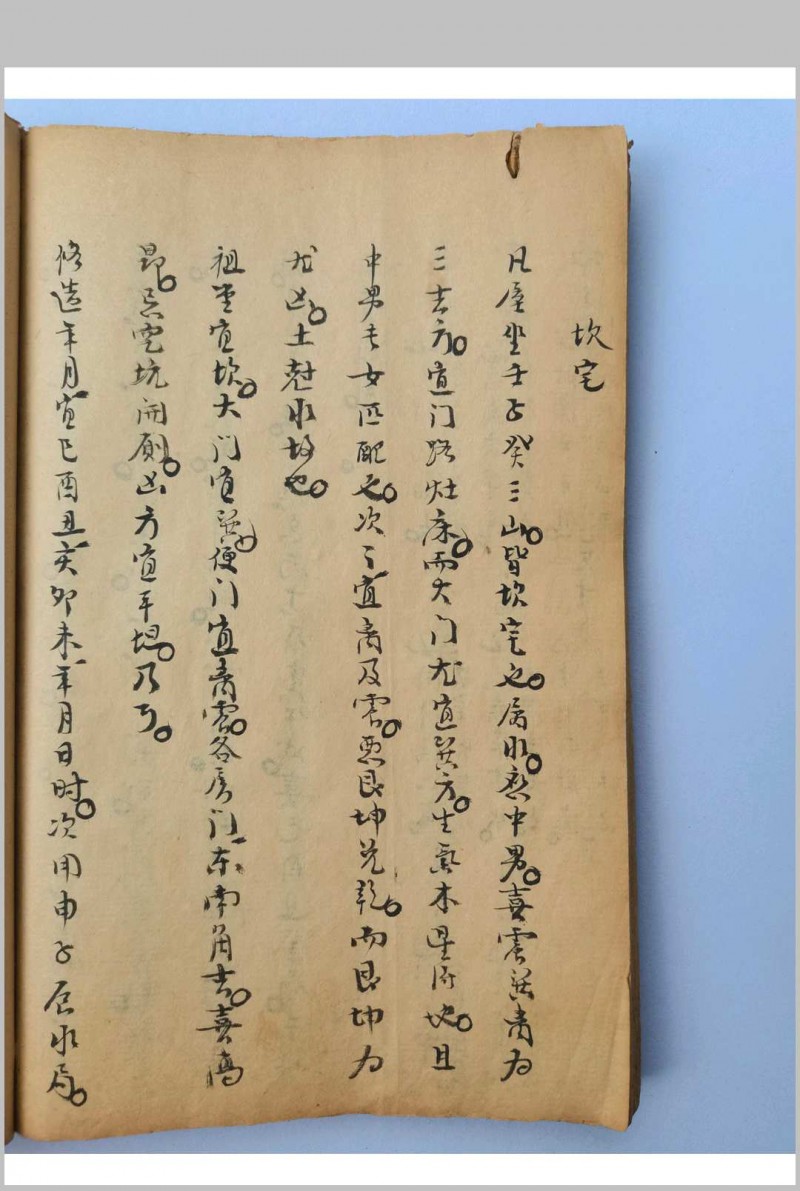 坎宅
凡屋坐壬子癸三山。皆坎宅也。属水。为中男。喜震巽离为
三吉方。宜门路灶床。而大门尤宜巽方。生气木星得地。且
中男长女匹配也。次之宜离及震。恶艮坤兑乾。而艮坤为
尤凶。土克水故也。
祖堂宜坎。大门宜巽。便门宜离震。各房门宜东南角吉。喜高
昂。忌宅坑开厕。凶方宜平坦。乃可。
修造年月宜巳酉丑亥卯未年月日时。次用申子辰水局。